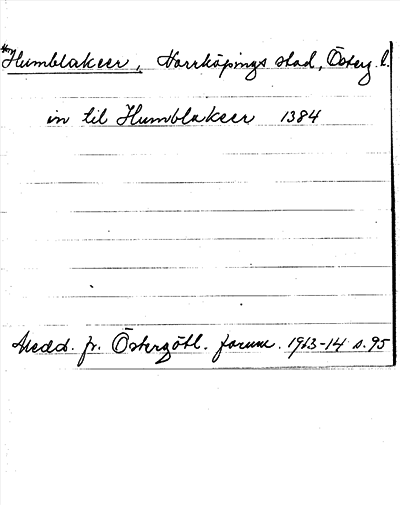 Humblakeer, Norrköpings stad, Österg. l.
in til Humblakeer 1384
Medd. fr. Östergötl. fornm. 1913-14 s. 95